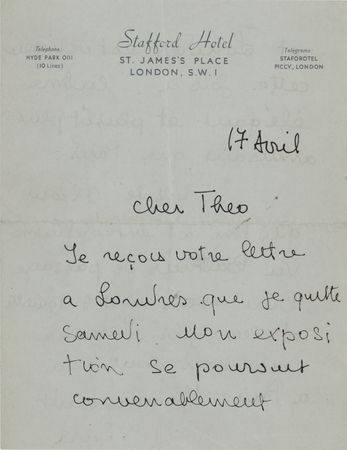 Stafford Hotel
Telephone
HYDE PARK 0111
(10 Lines)
ST. JAMES'S PLACE
LONDON, S.W.1
Telegrams
STAFORDTEL
PICCY, LONDON
17 Avril
cher Theo
Je reçois votre lettre
a Londres que je quitte
samedi. Mon exposi
tion se poursuit
convenablement